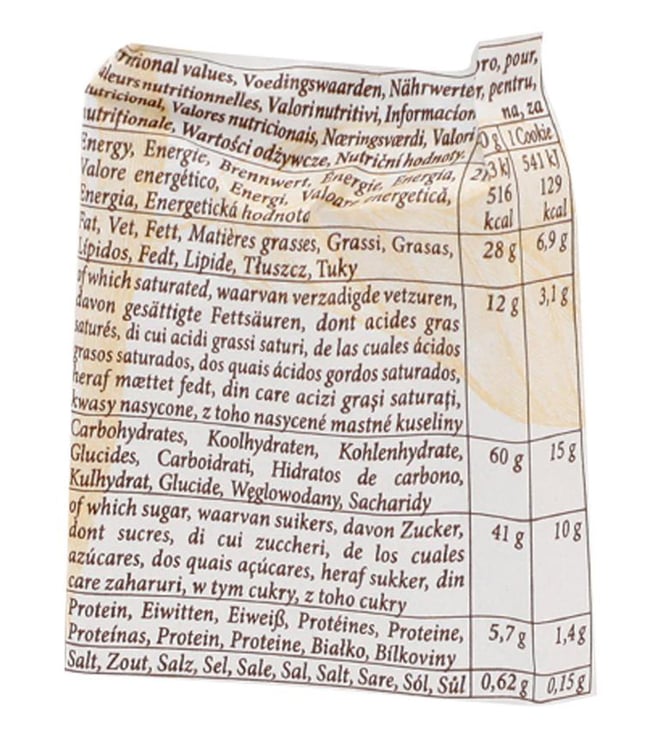 values, Voedingswaarden, Nährwerter, pro, pour,
nutritionnelles, Valori nutritivi, Informacion pentru,
Valores nutricionais, Næringsværdi, Valori na, za
Wartości odżywcze, Nutriční hodnoty. 1 Cookie
Energy, Energie, Brennwert, Énergie, Energia, 541 kJ
Valore energético, Energi, energetică, 516 129
Energia, Energetická hodnota kcal kcal
Fat, Vet, Fett, Matières grasses, Grassi, Grasas, 28 g 6,9 g
Lípidos, Fedt, Lipide, Tłuszcz, Tuky
of which saturated, waarvan verzadigde vetzuren, 12 g 3,1 g
davon gesättigte Fettsäuren, dont acides gras
saturés, di cui acidi grassi saturi, de las cuales ácidos
grasos saturados, dos quais ácidos gordos saturados,
heraf mættet fedt, din care acizi grași saturați,
kwasy nasycone, z toho nasycené mastné kuseliny
Carbohydrates, Koolhydraten, Kohlenhydrate, 60 g 15 g
Glucides, Carboidrati, Hidratos de carbono,
Kulhydrat, Glucide, Węglowodany, Sacharidy
of which sugar, waarvan suikers, davon Zucker, 41 g 10 g
dont sucres, di cui zuccheri, de los cuales
azúcares, dos quais açúcares, heraf sukker, din
care zaharuri, w tym cukry, z toho cukry
Protein, Eiwitten, Eiweiß, Protéines, Proteine, 5,7 g 1,4 g
Proteínas, Protein, Proteine, Białko, Bílkoviny
Salt, Zout, Salz, Sel, Sale, Sal, Salt, Sare, Sól, Sůl 0,62 g 0,15 g